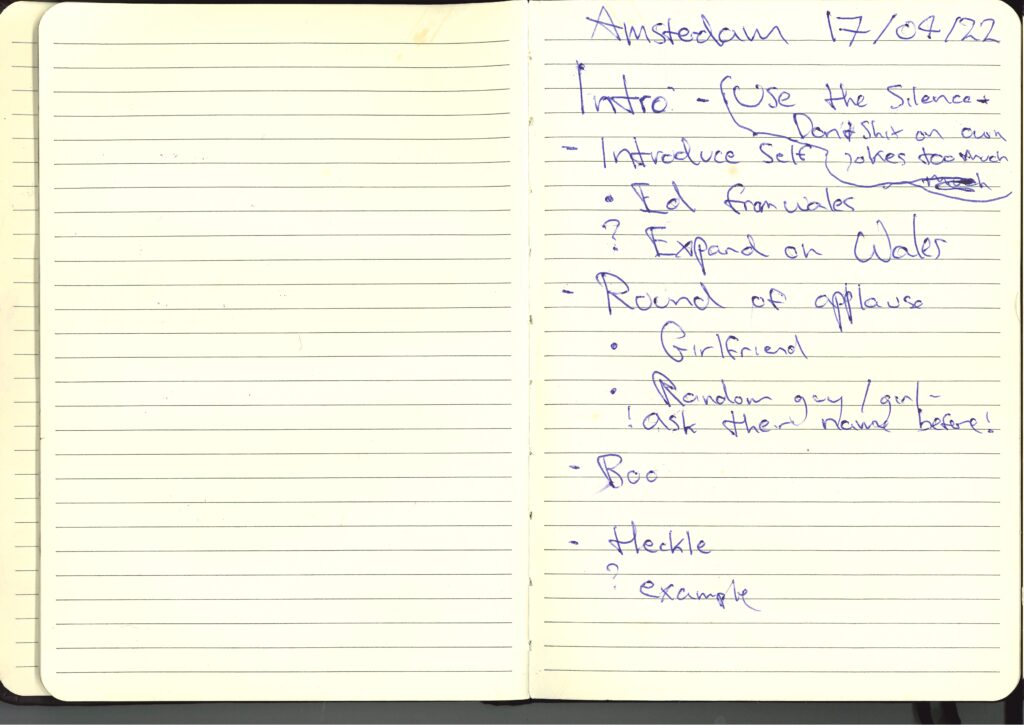 Amstedam 17/04/22
Intro: - Use the Silence +
Don't Shit on own
- Introduce Self jokes too much
• Ed from wales
? Expand on Wales
- Round of applause
• Girlfriend
• Random guy / girl -
! ask their name before!
- Boo
- Heckle
? example